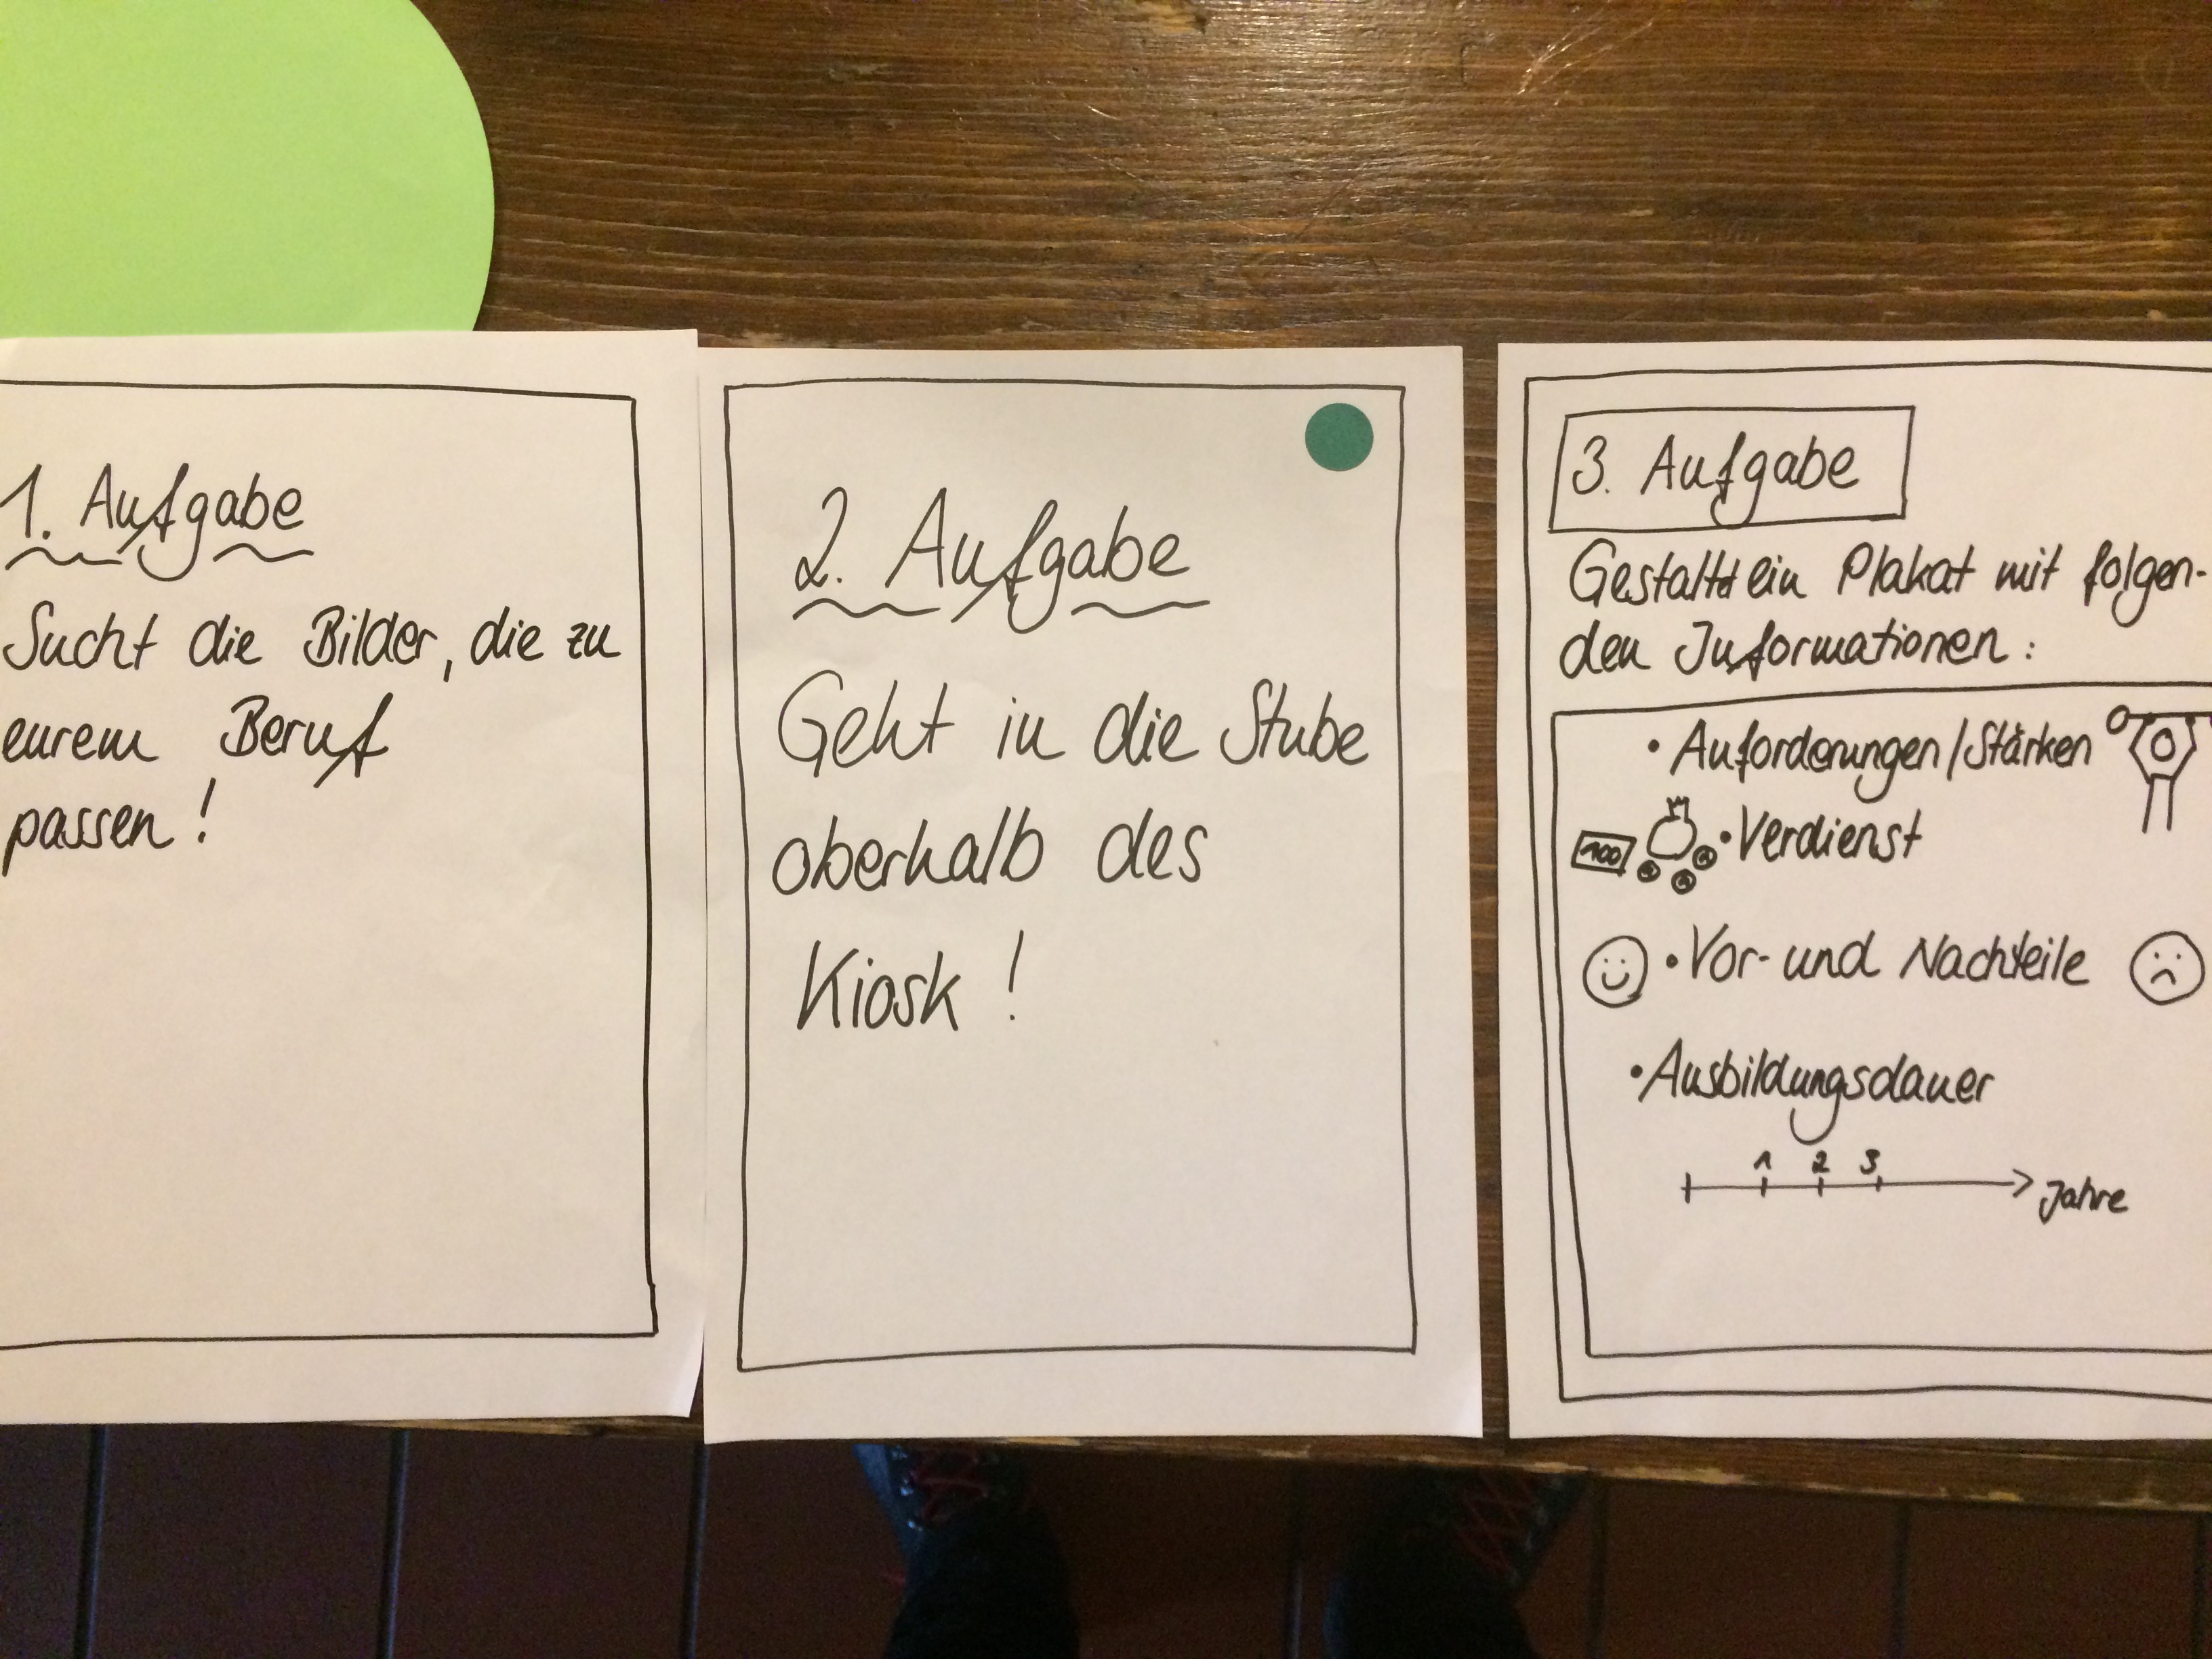 1. Aufgabe
Sucht die Bilder, die zu
eurem Beruf
passen!
2. Aufgabe
Geht in die Stube
oberhalb des
Kiosk!
3. Aufgabe
Gestaltet ein Plakat mit folgen-
den Informationen:
• Anforderungen/Stärken
100
• Verdienst
• Vor- und Nachteile
• Ausbildungsdauer
1 2 3
Jahre